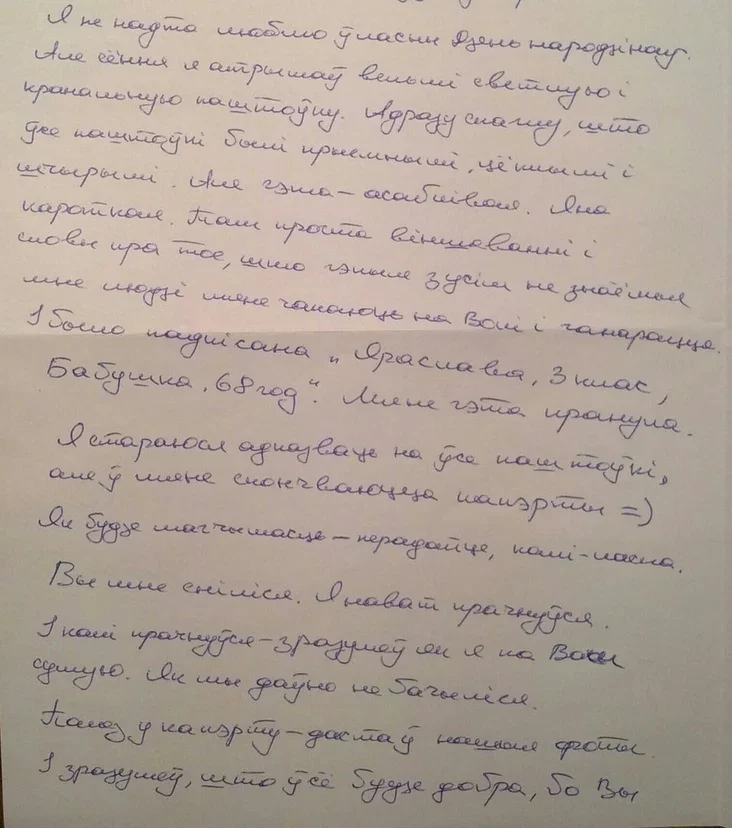 Я не надта люблю ўласны Дзень народзінаў.
Але сёння я атрымаў вельмі светлую і
кранальную паштоўку. Адразу скажу, што
ўсе паштоўкі былі прыемнымі, цёплымі і
шчырымі. Але гэта – асаблівая. Яна
кароткая. Там проста віншаванні і
словы пра тое, што гэтыя зусім не знаёмыя
мне людзі мяне чакаюць на Волі і ганарацца.
І было падпісана „Яраслава, 3 клас,
Бабушка, 68 год“. Мяне гэта кранула.
Я стараюся адказваць на ўсе паштоўкі,
але ў мяне скончваюцца канэрты =)
Як будзе магчымасць – перадайце, калі-ласка.
Вы мне сніліся. Я нават прачнуўся.
І калі прачнуўся – зразумеў як я па Вам
сумую. Як мы даўно не бачыліся.
Палез у канэрту – дастаў нашыя фоты.
І зразумеў, што ўсё будзе добра, бо Вы